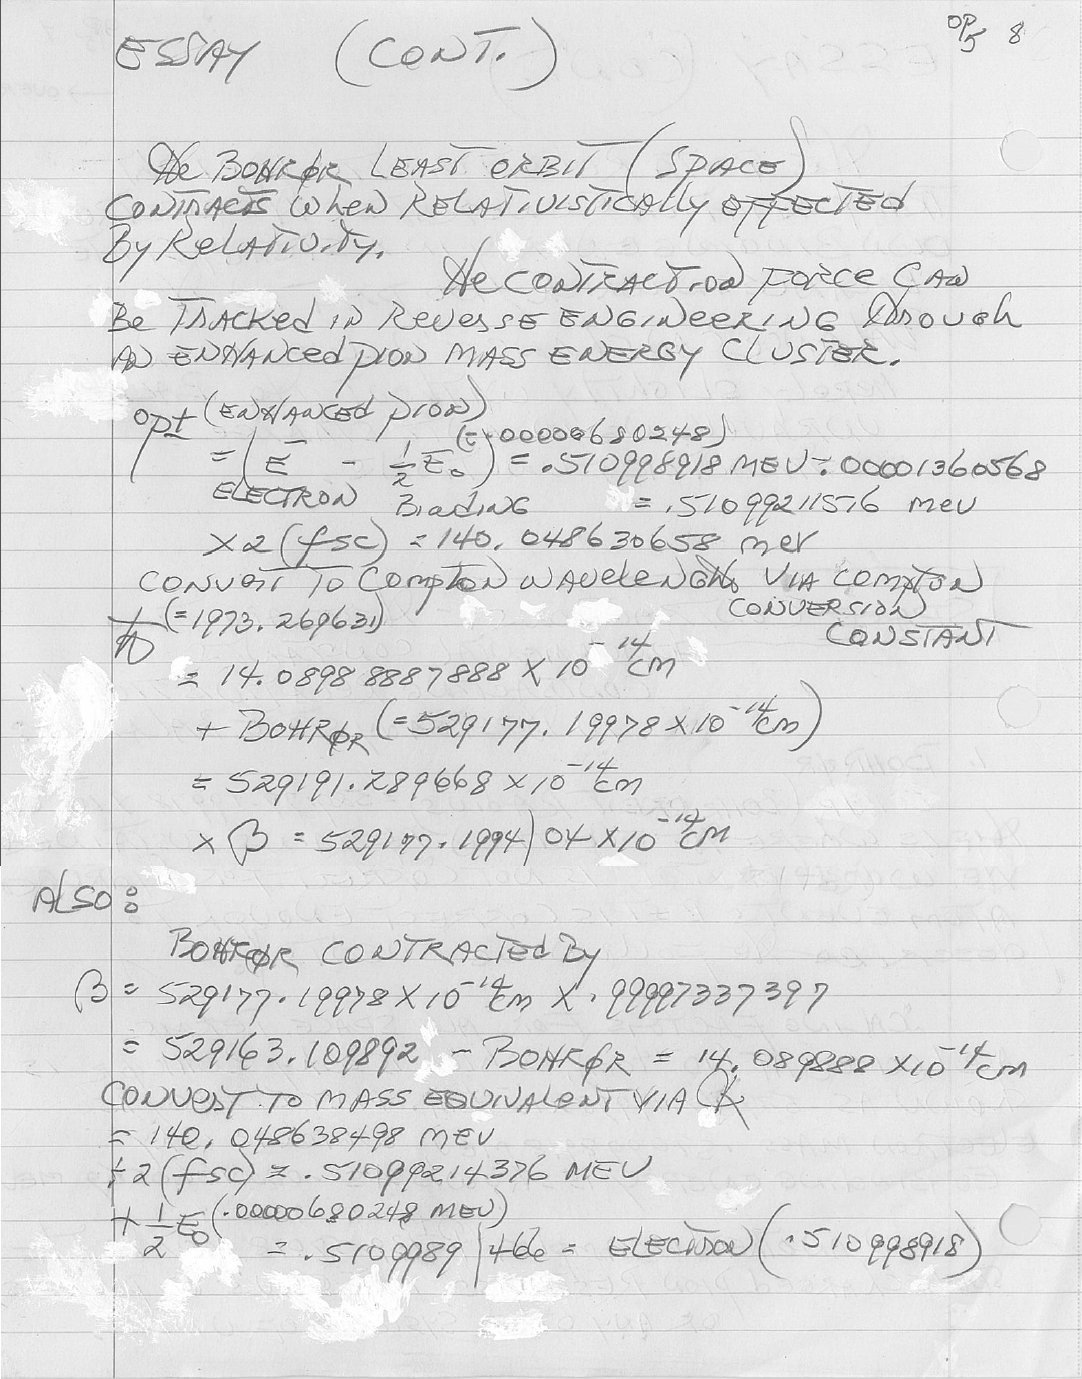 ESSAY (CONT.)
OP5 8
The BOHRØR LEAST ORBIT (SPACE)
CONTRACTS WHEN RELATIVISTICALLY EFFECTED
By RELATIVITY.
The CONTRACTION FORCE CAN
Be TRACKED IN REVERSE ENGINEERING Through
AN ENHANCED PION MASS ENERGY CLUSTER.
opt (ENHANCED PION)
(=.00000680248)
= (E - 1/2 E₀) = .510998918 MEV - .00001360568
ELECTRON BINDING = .51099211576 mev
X 2 (fsc) = 140.048630658 mev
CONVERT TO COMPTON WAVELENGTH VIA COMPTON
CONVERSION
CONSTANT
ħ (=1973.269631)
= 14.08988887888 X 10⁻¹⁴ cm
+ BOHRØR (=529177.19978 X 10⁻¹⁴ cm)
= 529191.289668 X 10⁻¹⁴ cm
X β = 529177.1994|04 X 10⁻¹⁴ cm
ALSO:
BOHRØR CONTRACTED By
β = 529177.19978 X 10⁻¹⁴ cm X .99997337397
= 529163.109892 - BOHRØR = 14.089888 X 10⁻¹⁴ cm
CONVERT TO MASS EQUIVALENT VIA
= 140.048638498 MEV
÷ 2 (fsc) = .51099214376 MEV
+ 1/2 E₀ (.00000680248 MEV)
= .5109989|466 = ELECTRON (.510998918)